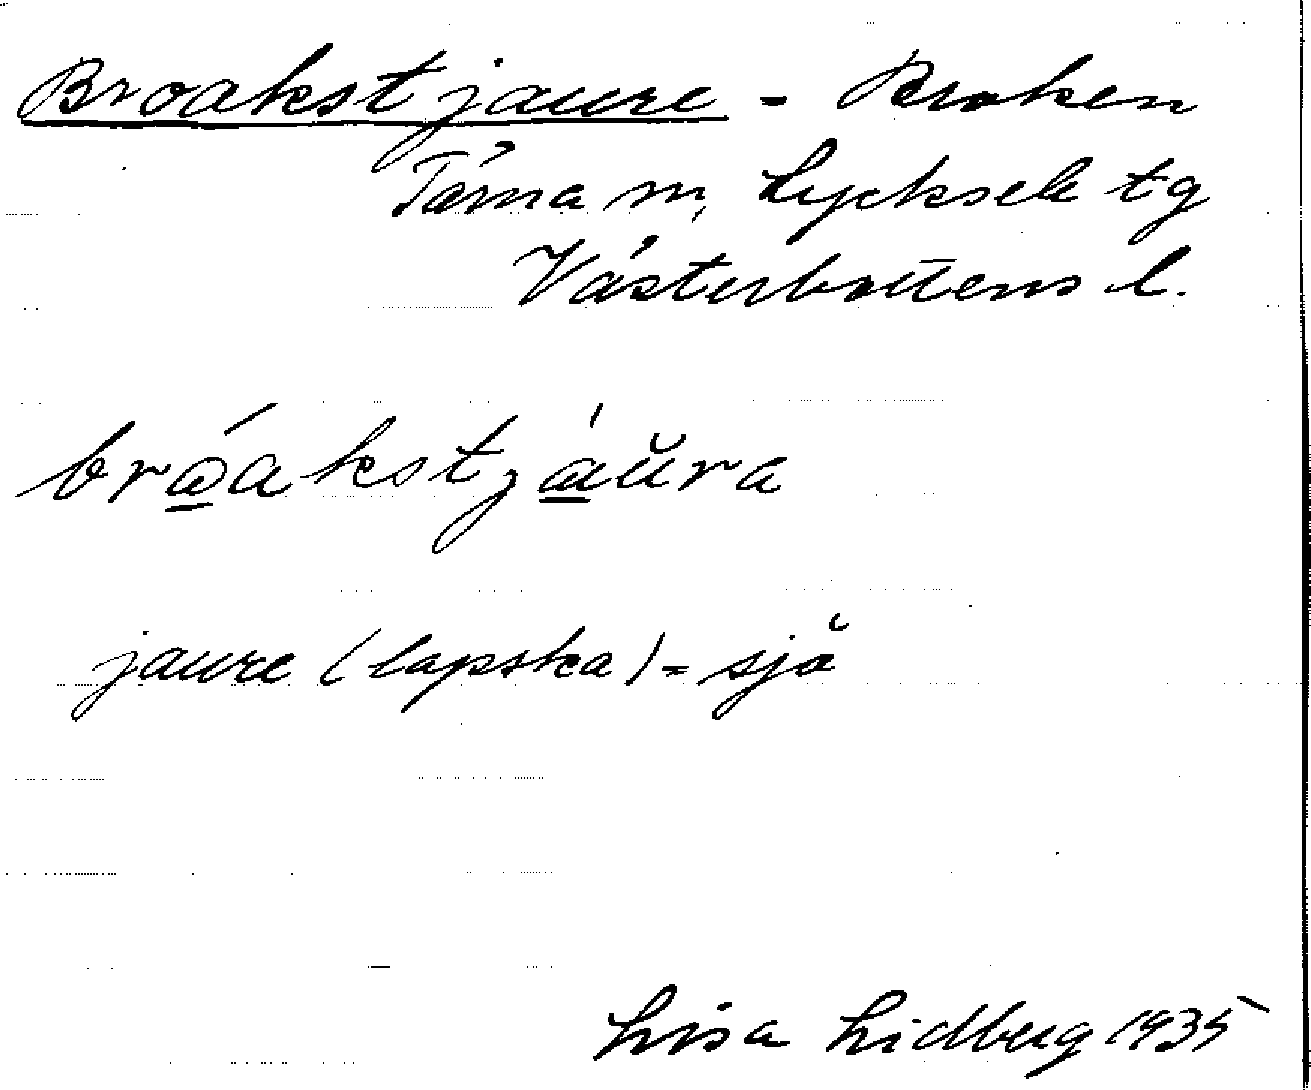 Broakstjaure - Broken
Tärna sn, Lycksele tg
Västerbottens l.
bròákstjàu̇ra
jaure (lapska) = sjö
Lisa Lidberg 1935